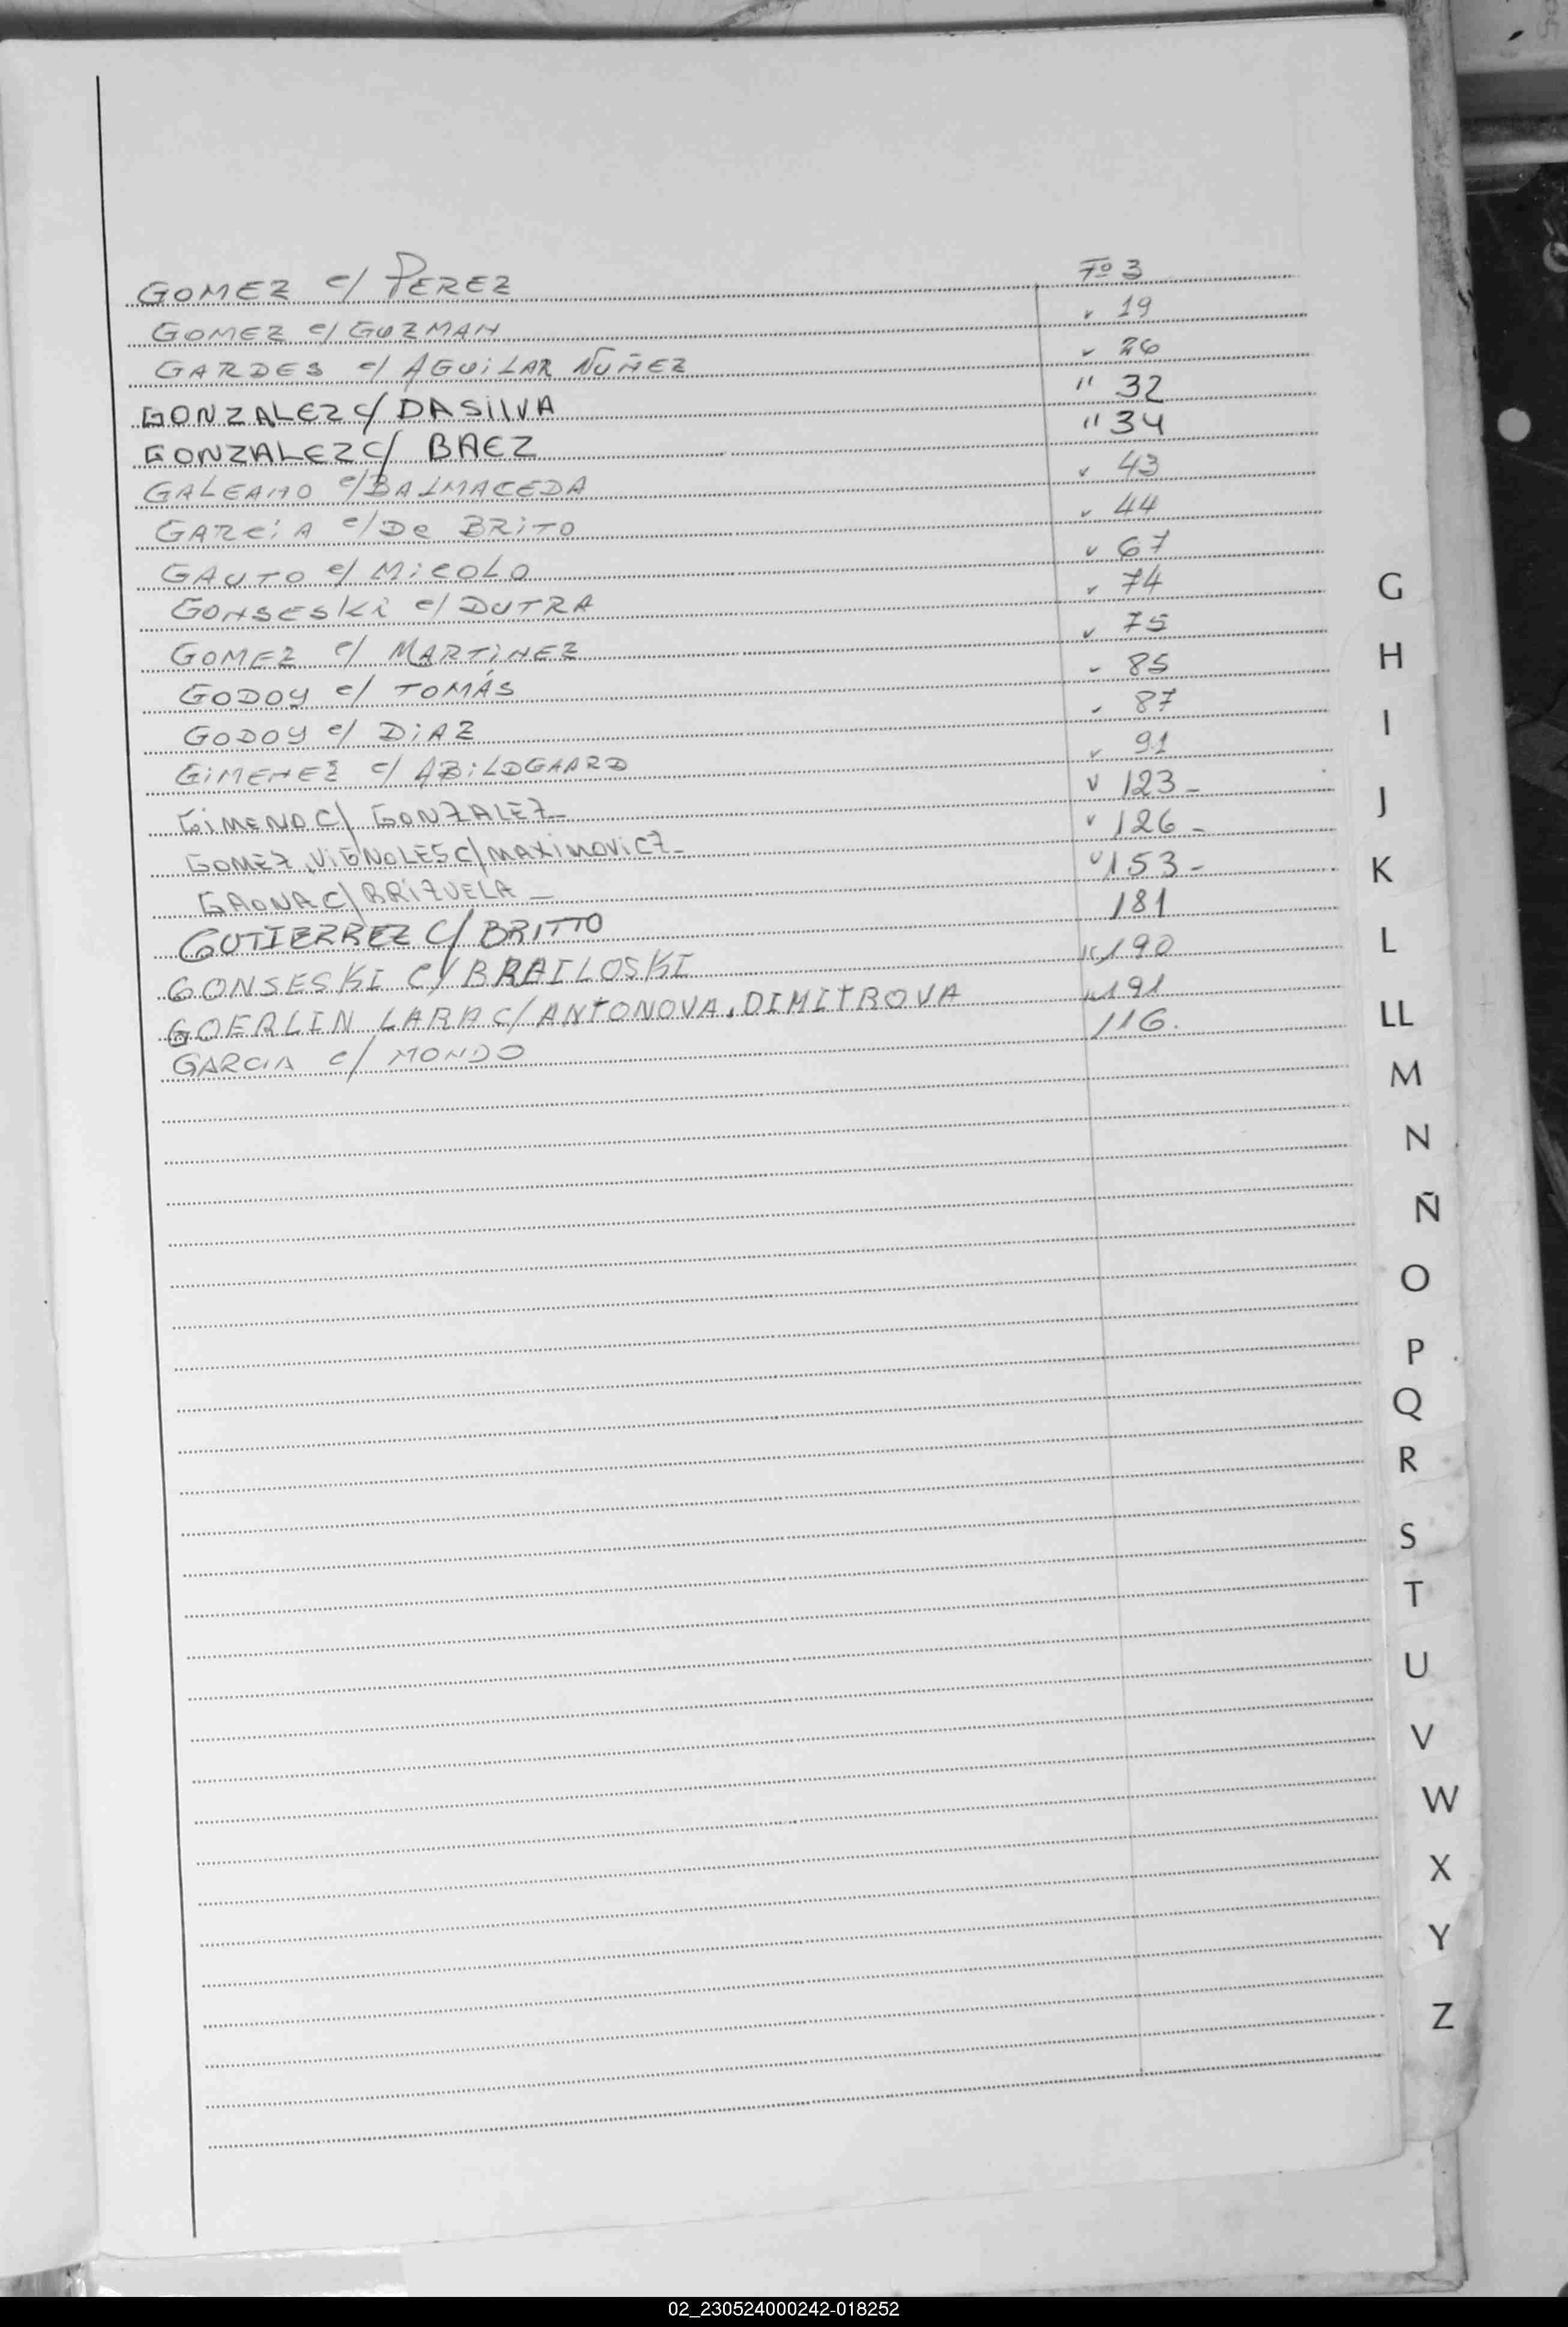 GOMEZ c/ PEREZ Fº 3
GOMEZ c/ GUZMAN " 19
GARDES c/ AGUiLAR NUÑEZ " 26
GONZALEZ c/ DASiLVA " 32
GONZALEZ c/ BAEZ " 34
GALEANO c/ BALMACEDA " 43
GARCiA c/ De BRiTO " 44
GAUTO c/ MiCOLO " 67
GONSESKi c/ DUTRA " 74
GOMEZ c/ MARTiNEZ " 75
GODOY c/ TOMÁS " 85
GODOY c/ DiAZ " 87
GiMENEZ c/ ABiLDGAARD " 91
GiMENO C/ GONZALEZ- " 123-
GOMEZ, ViGNOLES C/ MAXiMOViCZ- " 126-
GAONA C/ BRiZUELA - " 153-
GUTIERREZ C/ BRITTO 181
GONSESKI C/ BRAILOSKI " 190
GOERLIN LARA C/ ANTONOVA, DIMITROVA " 191
GARCIA c/ MONDO 116.
G
H
I
J
K
L
LL
M
N
Ñ
O
P
Q
R
S
T
U
V
W
X
Y
Z
02_230524000242-018252